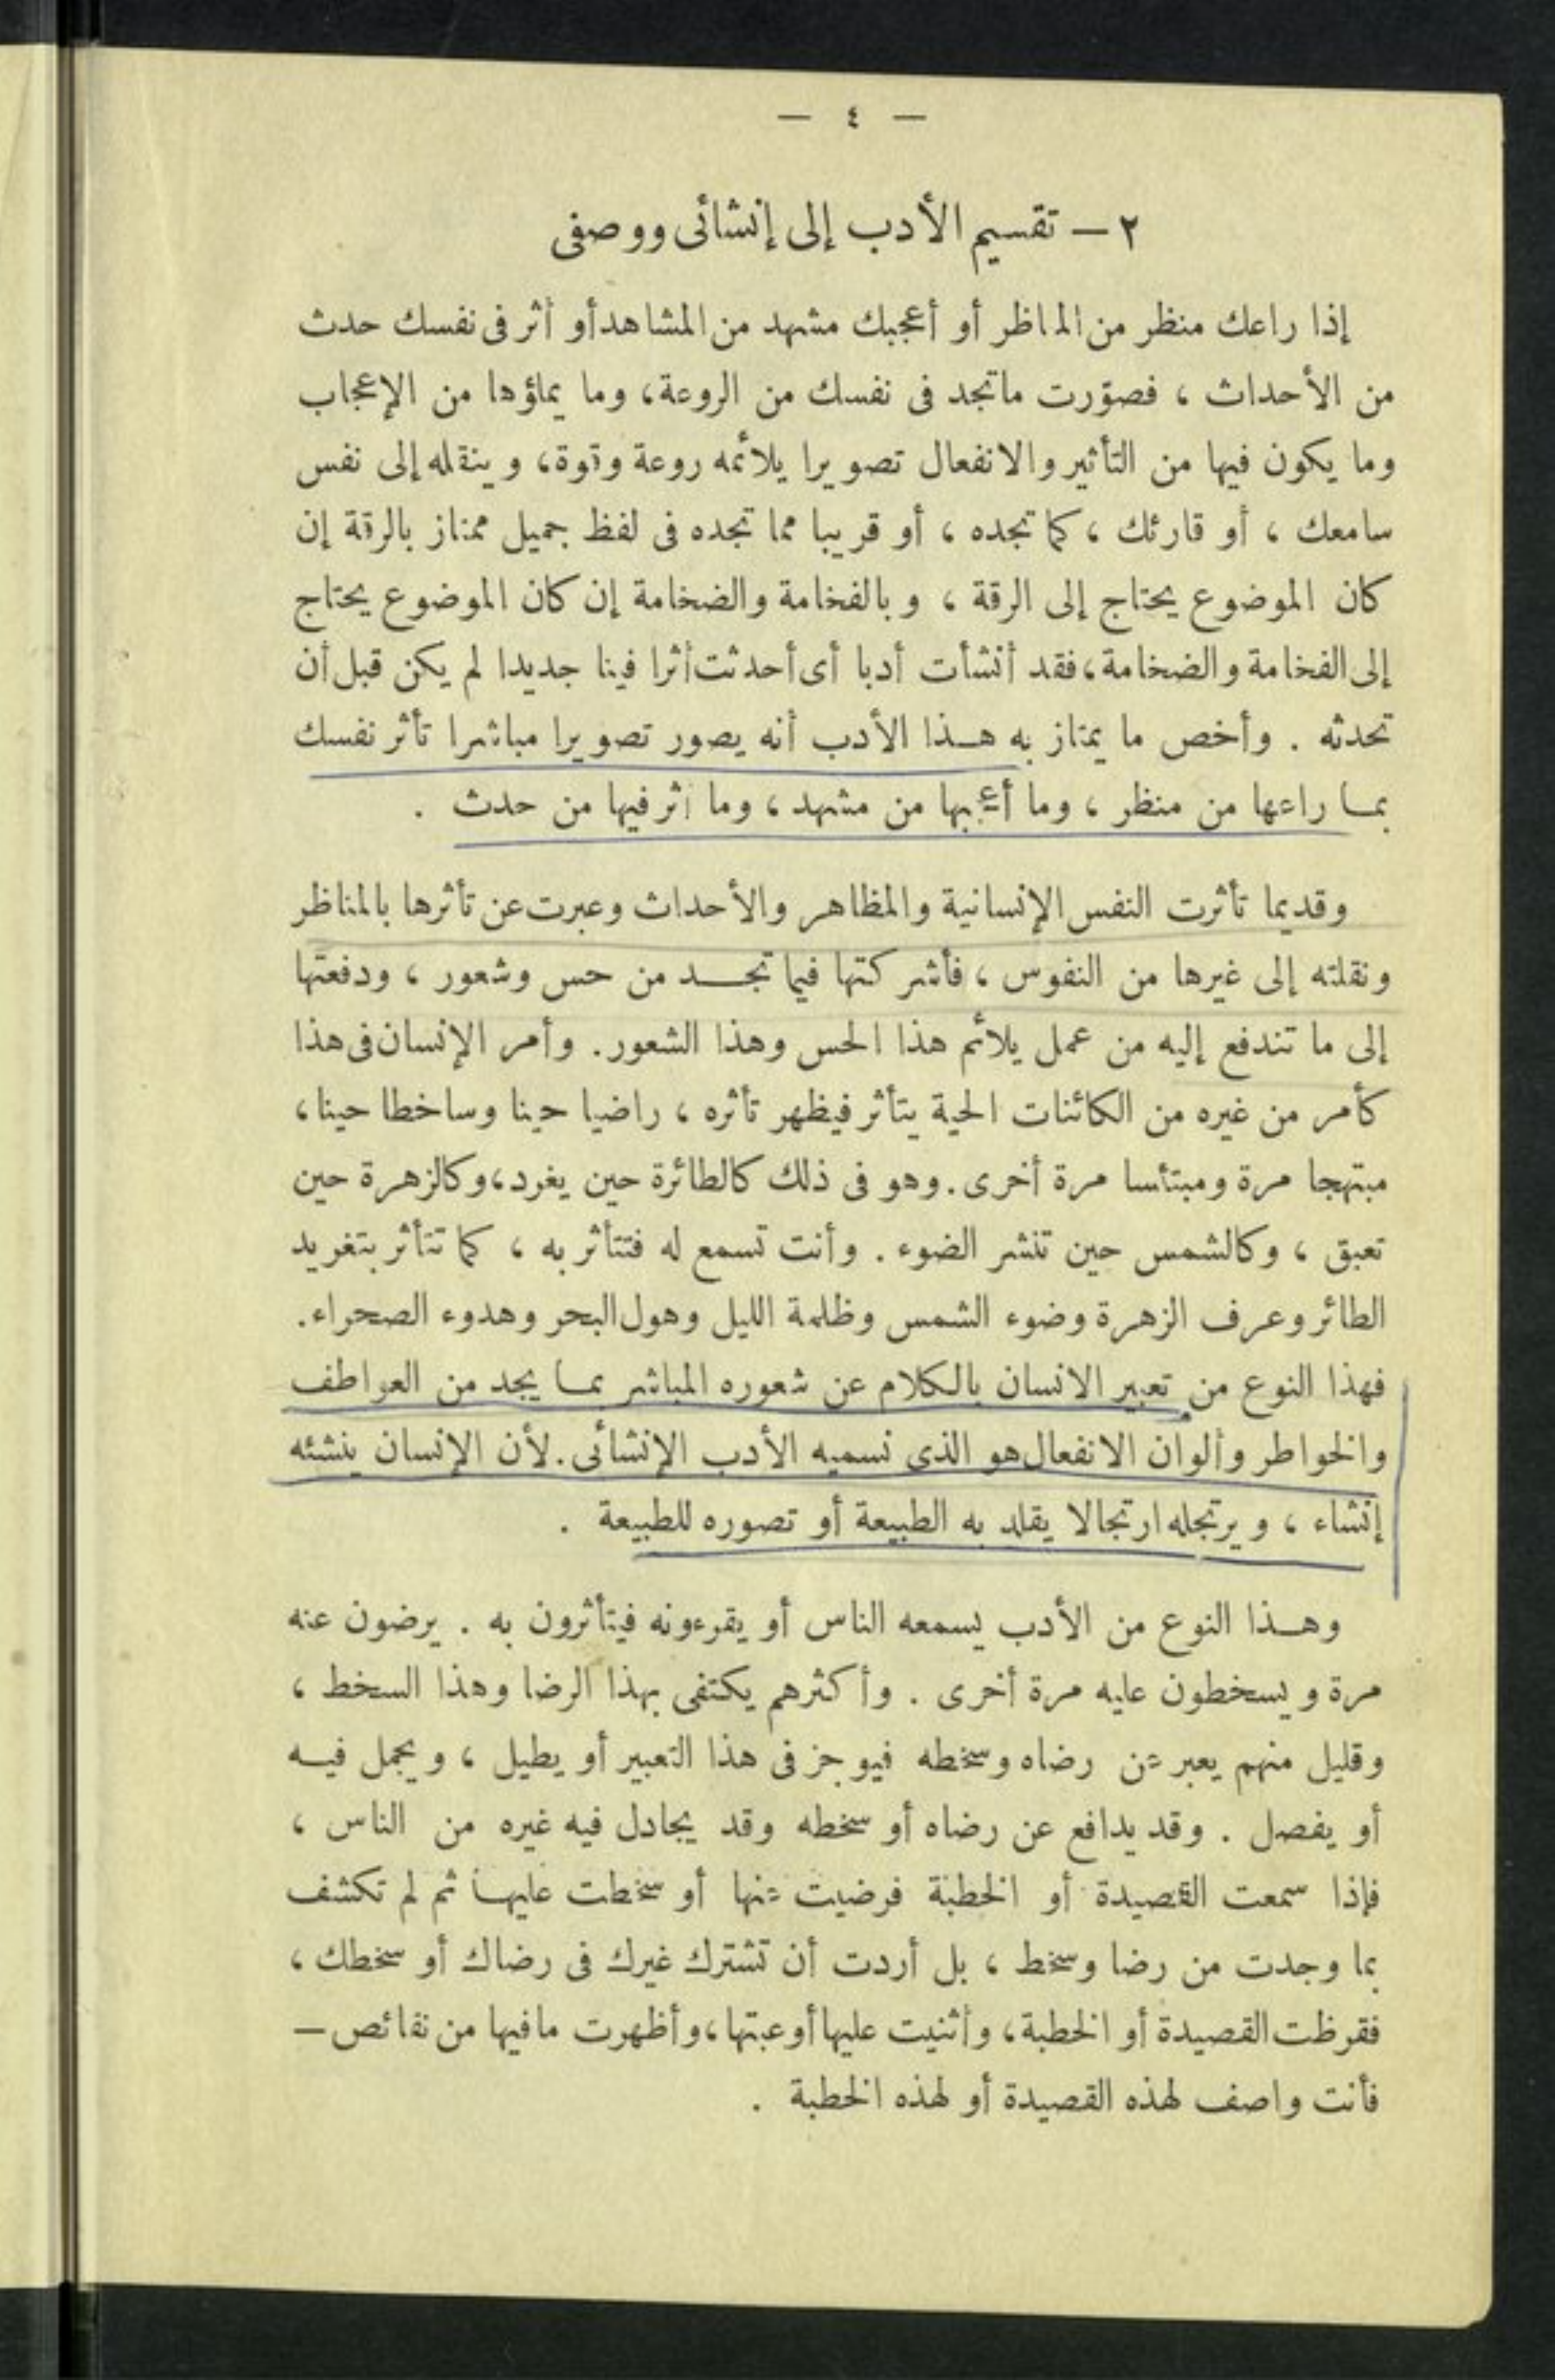 — ٤ —
٢ — تقسيم الأدب إلى إنشائى ووصفى
إذا راعك منظر من المناظر أو أعجبك مشهد من المشاهد أو أثر فى نفسك حدث
من الأحداث ، فصوّرت ماتجد فى نفسك من الروعة، وما يملؤها من الإعجاب
وما يكون فيها من التأثير والانفعال تصويرا يلائمه روعة وقوة، وينقله إلى نفس
سامعك ، أو قارئك ، كما تجده ، أو قريبا مما تجده فى لفظ جميل ممتاز بالرقة إن
كان الموضوع يحتاج إلى الرقة ، وبالفخامة والضخامة إن كان الموضوع يحتاج
إلى الفخامة والضخامة، فقد أنشأت أدبا أى أحدثت أثرا فينا جديدا لم يكن قبل أن
تحدثه . وأخص ما يمتاز به هـذا الأدب أنه يصور تصويرا مباشرا تأثر نفسك
بمـا راعها من منظر ، وما أعجبها من مشهد ، وما أثر فيها من حدث .
وقديما تأثرت النفس الإنسانية والمظاهر والأحداث وعبرت عن تأثرها بالمناظر
ونقلته إلى غيرها من النفوس ، فأشركتها فيما تجـد من حس وشعور ، ودفعتها
إلى ما تندفع إليه من عمل يلائم هذا الحس وهذا الشعور. وأمر الإنسان فى هذا
كأمر من غيره من الكائنات الحية يتأثر فيظهر تأثره ، راضيا حينا وساخطا حينا،
مبتهجا مرة ومبتئسا مرة أخرى. وهو فى ذلك كالطائرة حين يغرد، وكالزهرة حين
تعبق ، وكالشمس حين تنشر الضوء . وأنت تسمع له فتتأثر به ، كما تتأثر بتغريد
الطائر وعرف الزهرة وضوء الشمس وظلمة الليل وهول البحر وهدوء الصحراء.
فهذا النوع من تعبير الانسان بالكلام عن شعوره المباشر بمـا يجد من العواطف
والخواطر وألوان الانفعال هو الذى نسميه الأدب الإنشائى. لأن الإنسان ينشئه
إنشاء ، ويرتجله ارتجالا يقلد به الطبيعة أو تصوره للطبيعة .
وهـذا النوع من الأدب يسمعه الناس أو يقرءونه فيتأثرون به . يرضون عنه
مرة ويسخطون عليه مرة أخرى . وأكثرهم يكتفى بهذا الرضا وهذا السخط ،
وقليل منهم يعبر عن رضاه وسخطه فيوجز فى هذا التعبير أو يطيل ، ويجمل فيـه
أو يفصل . وقد يدافع عن رضاه أو سخطه وقد يجادل فيه غيره من الناس ،
فإذا سمعت القصيدة أو الخطبة فرضيت عنها أو سخطت عليهـا ثم لم تكشف
بما وجدت من رضا وسخط ، بل أردت أن تشترك غيرك فى رضاك أو سخطك ،
فقرظت القصيدة أو الخطبة، وأثنيت عليها أو عبتها، وأظهرت مافيها من نقائص —
فأنت واصف لهذه القصيدة أو لهذه الخطبة .